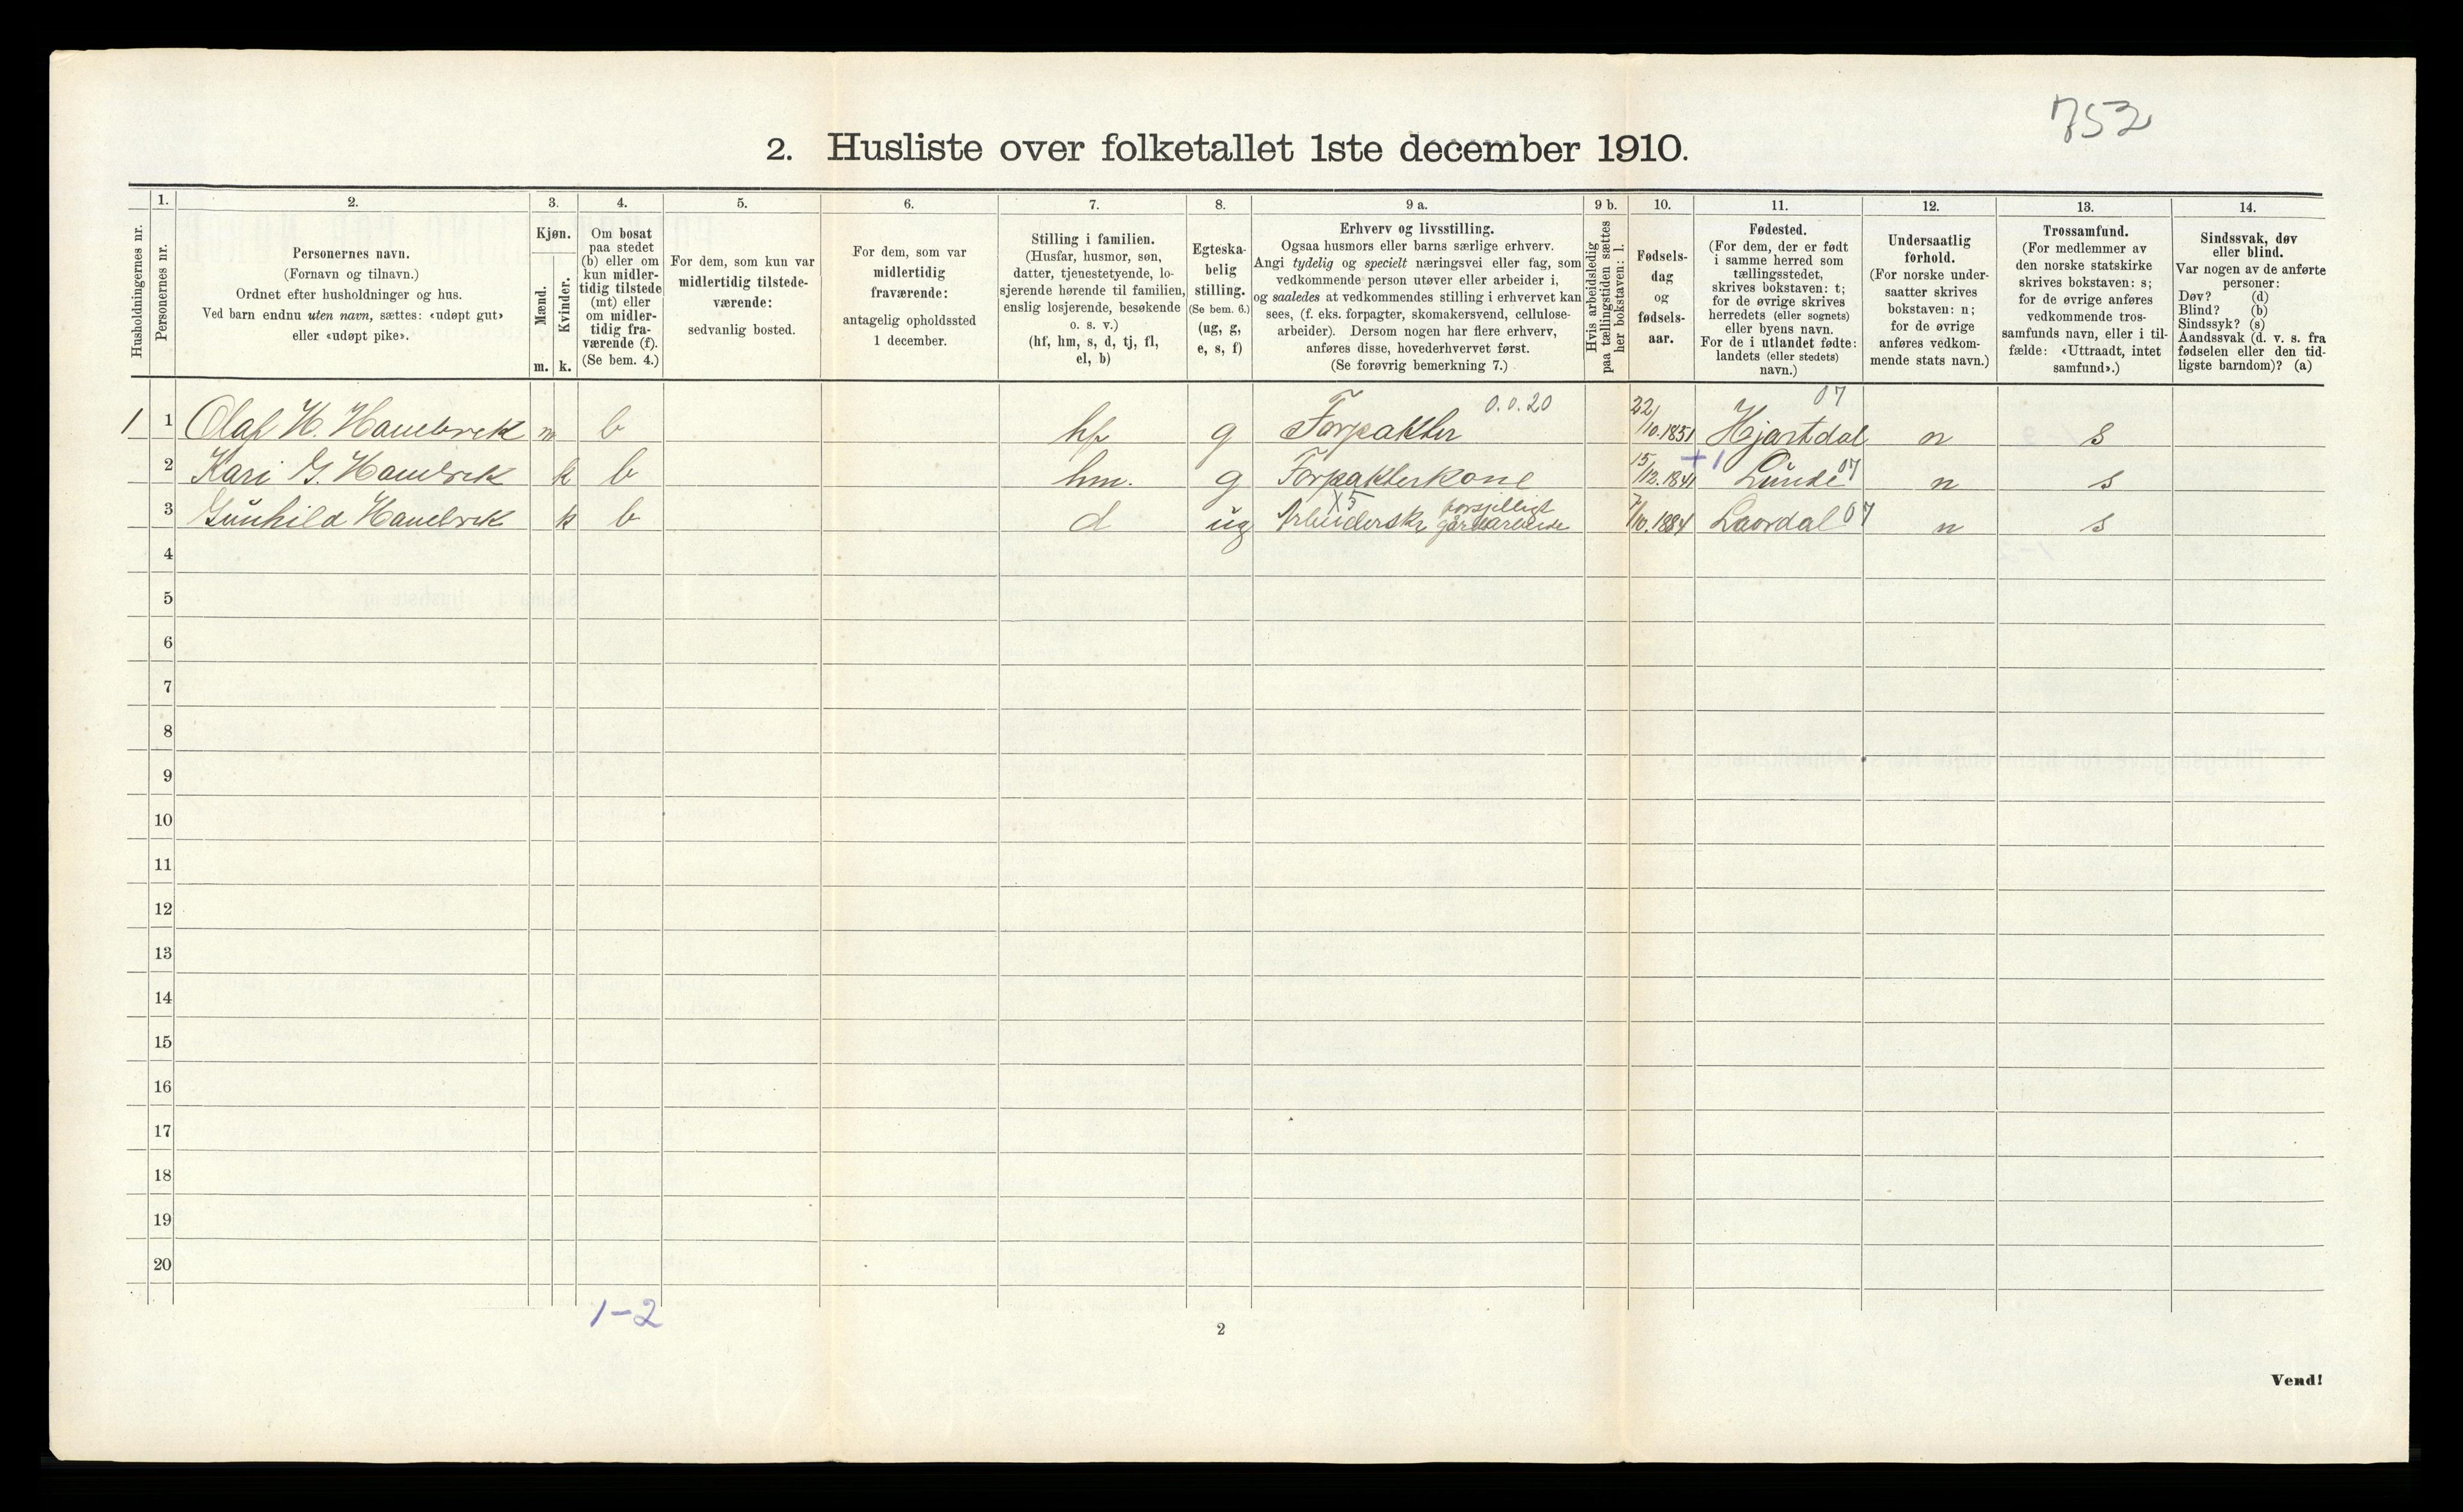 752
2. Husliste over folketallet 1ste december 1910.
Husholdningernes nr.
1.
Personernes nr.
2.
Personernes navn.
(Fornavn og tilnavn.)
Ordnet efter husholdninger og hus.
Ved barn endnu uten navn, sættes: «udøpt gut»
eller «udøpt pike».
3.
Kjøn.
Mænd.
Kvinder.
m. k.
4.
Om bosat
paa stedet
(b) eller om
kun midler-
tidig tilstede
(mt) eller
om midler-
tidig fra-
værende (f).
(Se bem. 4.)
5.
For dem, som kun var
midlertidig tilstede-
værende:
sedvanlig bosted.
6.
For dem, som var
midlertidig
fraværende:
antagelig opholdssted
1 december.
7.
Stilling i familien.
(Husfar, husmor, søn,
datter, tjenestetyende, lo-
sjerende hørende til familien,
enslig losjerende, besøkende
o. s. v.)
(hf, hm, s, d, tj, fl,
el, b)
8.
Egteska-
belig
stilling.
(Se bem. 6.)
(ug, g,
e, s, f)
9 a.
Erhverv og livsstilling.
Ogsaa husmors eller barns særlige erhverv.
Angi tydelig og specielt næringsvei eller fag, som
vedkommende person utøver eller arbeider i,
og saaledes at vedkommendes stilling i erhvervet kan
sees, (f. eks. forpagter, skomakersvend, cellulose-
arbeider). Dersom nogen har flere erhverv,
anføres disse, hovederhvervet først.
(Se forøvrig bemerkning 7.)
9 b.
Hvis arbeidsledig
paa tællingstiden sættes
her bokstaven: l.
10.
Fødsels-
dag
og
fødsels-
aar.
11.
Fødested.
(For dem, der er født
i samme herred som
tællingsstedet,
skrives bokstaven: t;
for de øvrige skrives
herredets (eller sognets)
eller byens navn.
For de i utlandet fødte:
landets (eller stedets)
navn.)
12.
Undersaatlig
forhold.
(For norske under-
saatter skrives
bokstaven: n;
for de øvrige
anføres vedkom-
mende stats navn.)
13.
Trossamfund.
(For medlemmer av
den norske statskirke
skrives bokstaven: s;
for de øvrige anføres
vedkommende tros-
samfunds navn, eller i til-
fælde: «Uttraadt, intet
samfund».)
14.
Sindssvak, døv
eller blind.
Var nogen av de anførte
personer:
Døv? (d)
Blind? (b)
Sindssyk? (s)
Aandssvak (d. v. s. fra
fødselen eller den tid-
ligste barndom)? (a)
1 1 Olaf H. Hambrek m b hf g Forpakter 0.0.20 22/10.1851 Hjartdal 07 n s
2 Kari G. Hambrek k b hm. g Forpakterkone 15/12.1841 +1 Lunde 07 n s
3 Gunhild Hambrek k b d ug Arbeiderske X5 forsjilligt gårdarbeide 7/10.1884 Lavrdal 07 n s
4
5
6
7
8
9
10
11
12
13
14
15
16
17
18
19
20
1-2
2
Vend!